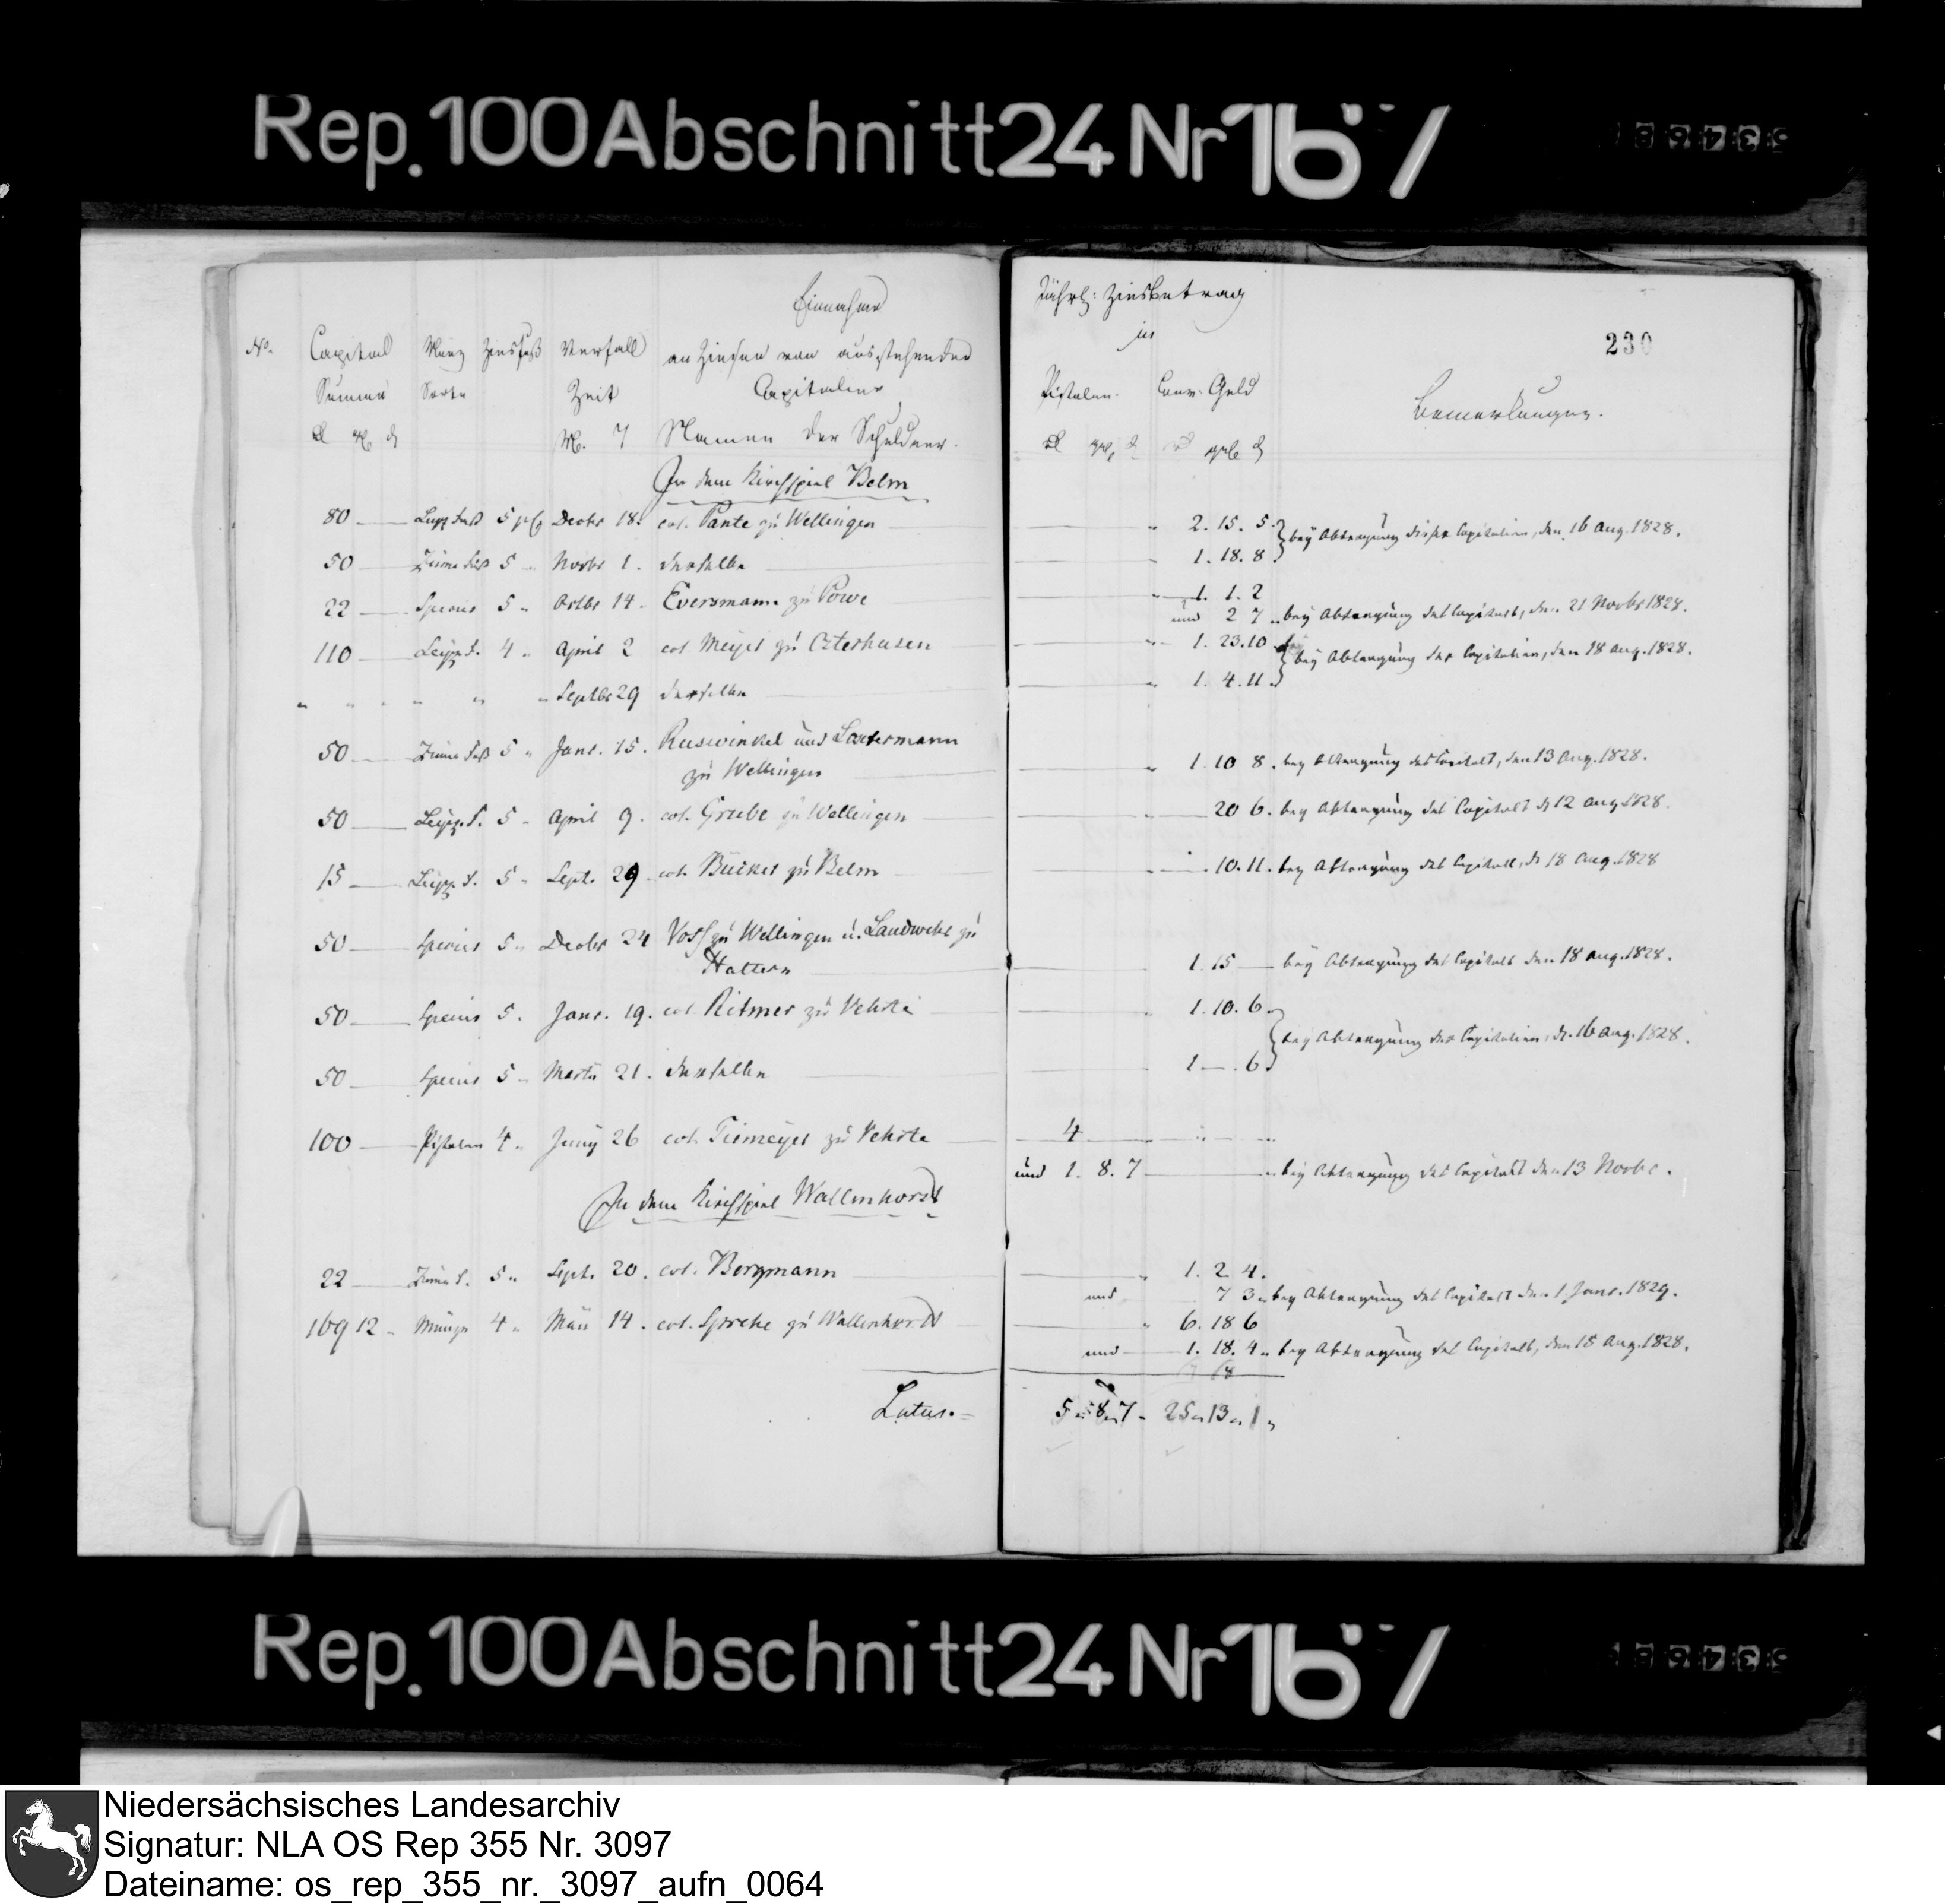 Rep. 100 Abschnitt 24 Nr 167
Einnahme
No. Capital Münz Zinsfuß Verfall an Zinsen von ausstehenden
Summe Sorte Zeit Capitalien
M. T Namen der Schuldner.
In dem Kirchspiel Belm
80 — 5 Decbr 18. col. Pante zu Wellingen
50 — 5 " Novbr 1. derselbe
22 — Species 5 " Octbr 14. Eversmann zu Powe
110 — 4 " April 2 col. Meyer zu Azterhusen
" " " " " " Septbr 29 derselbe
50 — 5 " Janr. 15. Ruswinkel und
zu Wellingen
50 — 5 " April 9. col. Grube zu Wellingen
15 — 5 " Sept. 29 col. Bücker zu Belm
50 — Species 5 " Decbr 24 Voss zu Wellingen u. Landwehr zu
Haltern
50 — Species 5. Janr. 19. col. Ritmer zu Vehrte
50 — Species 5 " Martii 21. derselbe
100 — Pistolen 4 " Juny 26 col. Tiemeyer zu Vehrte
In dem Kirchspiel Wallenhorst
22 — 5 " Sept. 20. col. Bergmann
169 12 " Münze 4 " Maii 14. col. Sprehe zu Wallenhorst
Latus. =
230
Jährl: Zinsbetrag
in
Pistolen. Conv: Geld Bemerkungen.
" 2. 15. 5 bey Abtragung dieser Capitalien, den 16 Aug. 1828.
" 1. 18. 8
" 1. 1. 2
und 2 7 " bey Abtragung des Capitals, den 21 Novbr 1828.
" 1. 23. 10 bey Abtragung der Capitalien, den 18 Aug. 1828.
" 1. 4. 11
" 1 10 8. bey Abtragung des Capitals, den 13 Aug. 1828.
" — 20 6. bey Abtragung des Capitals d. 12 Aug. 1828.
" — 10. 11. bey Abtragung des Capitals, d. 18 Aug. 1828
1. 15 — bey Abtragung des Capitals den 18 Aug. 1828.
" 1. 10. 6 bey Abtragung der Capitalien, d. 16 Aug. 1828.
1 — . 6
4 — " " "
und 1. 8. 7 — " bey Abtragung des Capitals den 13 Novbr.
" 1. 2 4.
und 7 3 " bey Abtragung des Capitals den 1 Janr. 1829.
" 6. 18 6
und — 1. 18. 4 " bey Abtragung des Capitals, den 15 Aug. 1828.
5 " 8 " 7 " 25 " 13 " 1 "
Rep. 100 Abschnitt 24 Nr 167
Niedersächsisches Landesarchiv
Signatur: NLA OS Rep 355 Nr. 3097
Dateiname: os_rep_355_nr._3097_aufn_0064